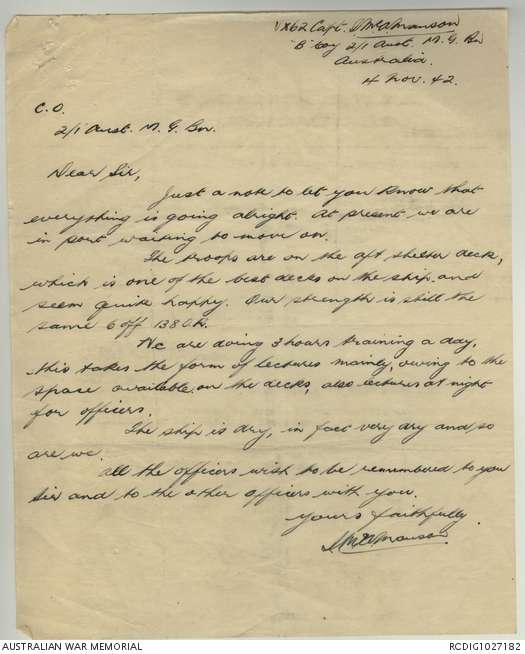 VX62 Capt. J McA. Manson
"B" Coy 2/1 Aust. M. G. Bn
Australia.
4 Nov. 42.
C.O.
2/1 Aust. M. G. Bn.
Dear Sir,
Just a note to let you know that
everything is going alright. At present we are
in port waiting to move on.
The troops are on the aft shelter deck,
which is one of the best decks on the ship and
seem quite happy. Our strength is still the
same 6 off 138 O.R.
We are doing 3 hours training a day,
this takes the form of lectures mainly, owing to the
space available on the decks, also lectures at night
for officers.
The ship is dry, in fact very dry and so
are we.
All the officers wish to be remembered to you
Sir and to the other officers with you.
Yours faithfully
Manson
AUSTRALIAN WAR MEMORIAL
RCDIG1027182